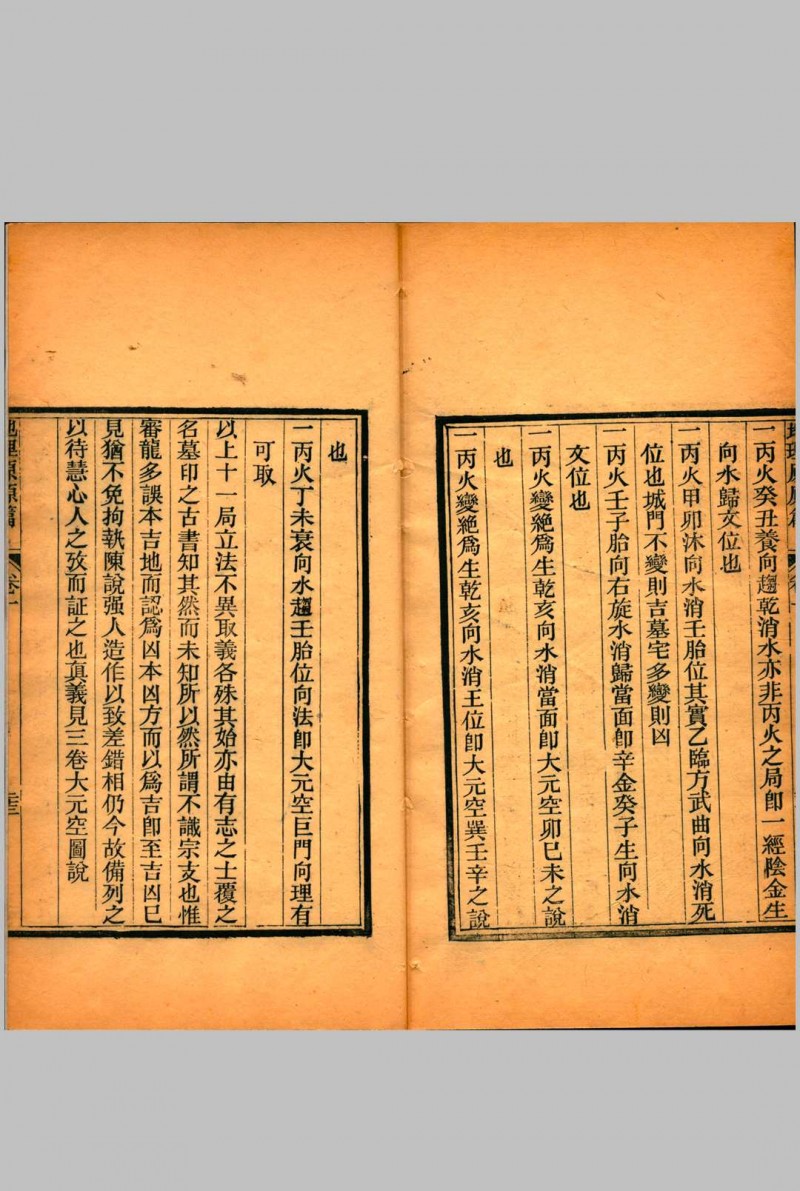 一丙火癸丑養向趨乾消水亦非丙火之局卽一經陰金生
向水歸文位也
一丙火甲卯沐向水消壬胎位其實乙臨方武曲向水消死
位也城門不變則吉墓宅多變則凶
一丙火壬子胎向右旋水消歸當面卽辛金癸子生向水消
文位也
一丙火變絶爲生乾亥向水消當面卽大元空卯巳未之說
也
一丙火變絶爲生乾亥向水消王位卽大元空巽壬辛之說
也
一丙火丁未衰向水趨壬胎位向法卽大元空巨門向理有
可取
以上十一局立法不異取義各殊其始亦由有志之士覆之
名墓印之古書知其然而未知所以然所謂不識宗支也惟
審龍多誤本吉地而認爲凶本凶方而以爲吉卽至吉凶已
見猶不免拘執陳說强人造作以致差錯相仍今故備列之
以待慧心人之攷而証之也眞義見三卷大元空圖說
地理原原篇
卷一